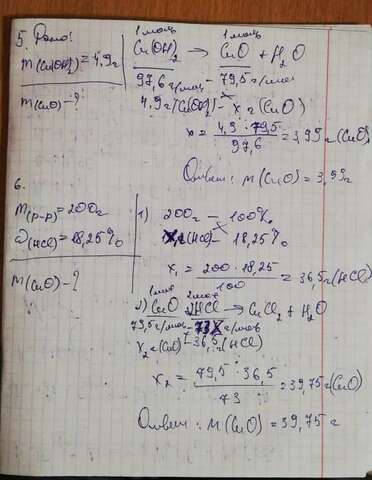 5. Дано:
m(Cu(OH)₂) = 4,9г
m(CuO) - ?
1 моль 1 моль
Cu(OH)₂ → CuO + H₂O
97,6 г/моль - 79,5 г/моль
4,9 г (Cu(OH)₂) - x г (CuO)
x = 4,9 · 79,5 / 97,6 = 3,99 г (CuO)
Ответ: m(CuO) = 3,99г
6.
m(р-р) = 200г
ω(HCl) = 18,25%
m(CuO) - ?
1) 200г - 100%
x₁г (HCl) - 18,25%
x₁ = 200 · 18,25 / 100 = 36,5 г (HCl)
2) 1моль 2моль
CuO 2HCl → CuCl₂ + H₂O
79,5 г/моль - 73 г/моль
x₂ г (CuO) - 36,5 г (HCl)
x₂ = 79,5 · 36,5 / 73 = 39,75 г (CuO)
Ответ: m(CuO) = 39,75 г